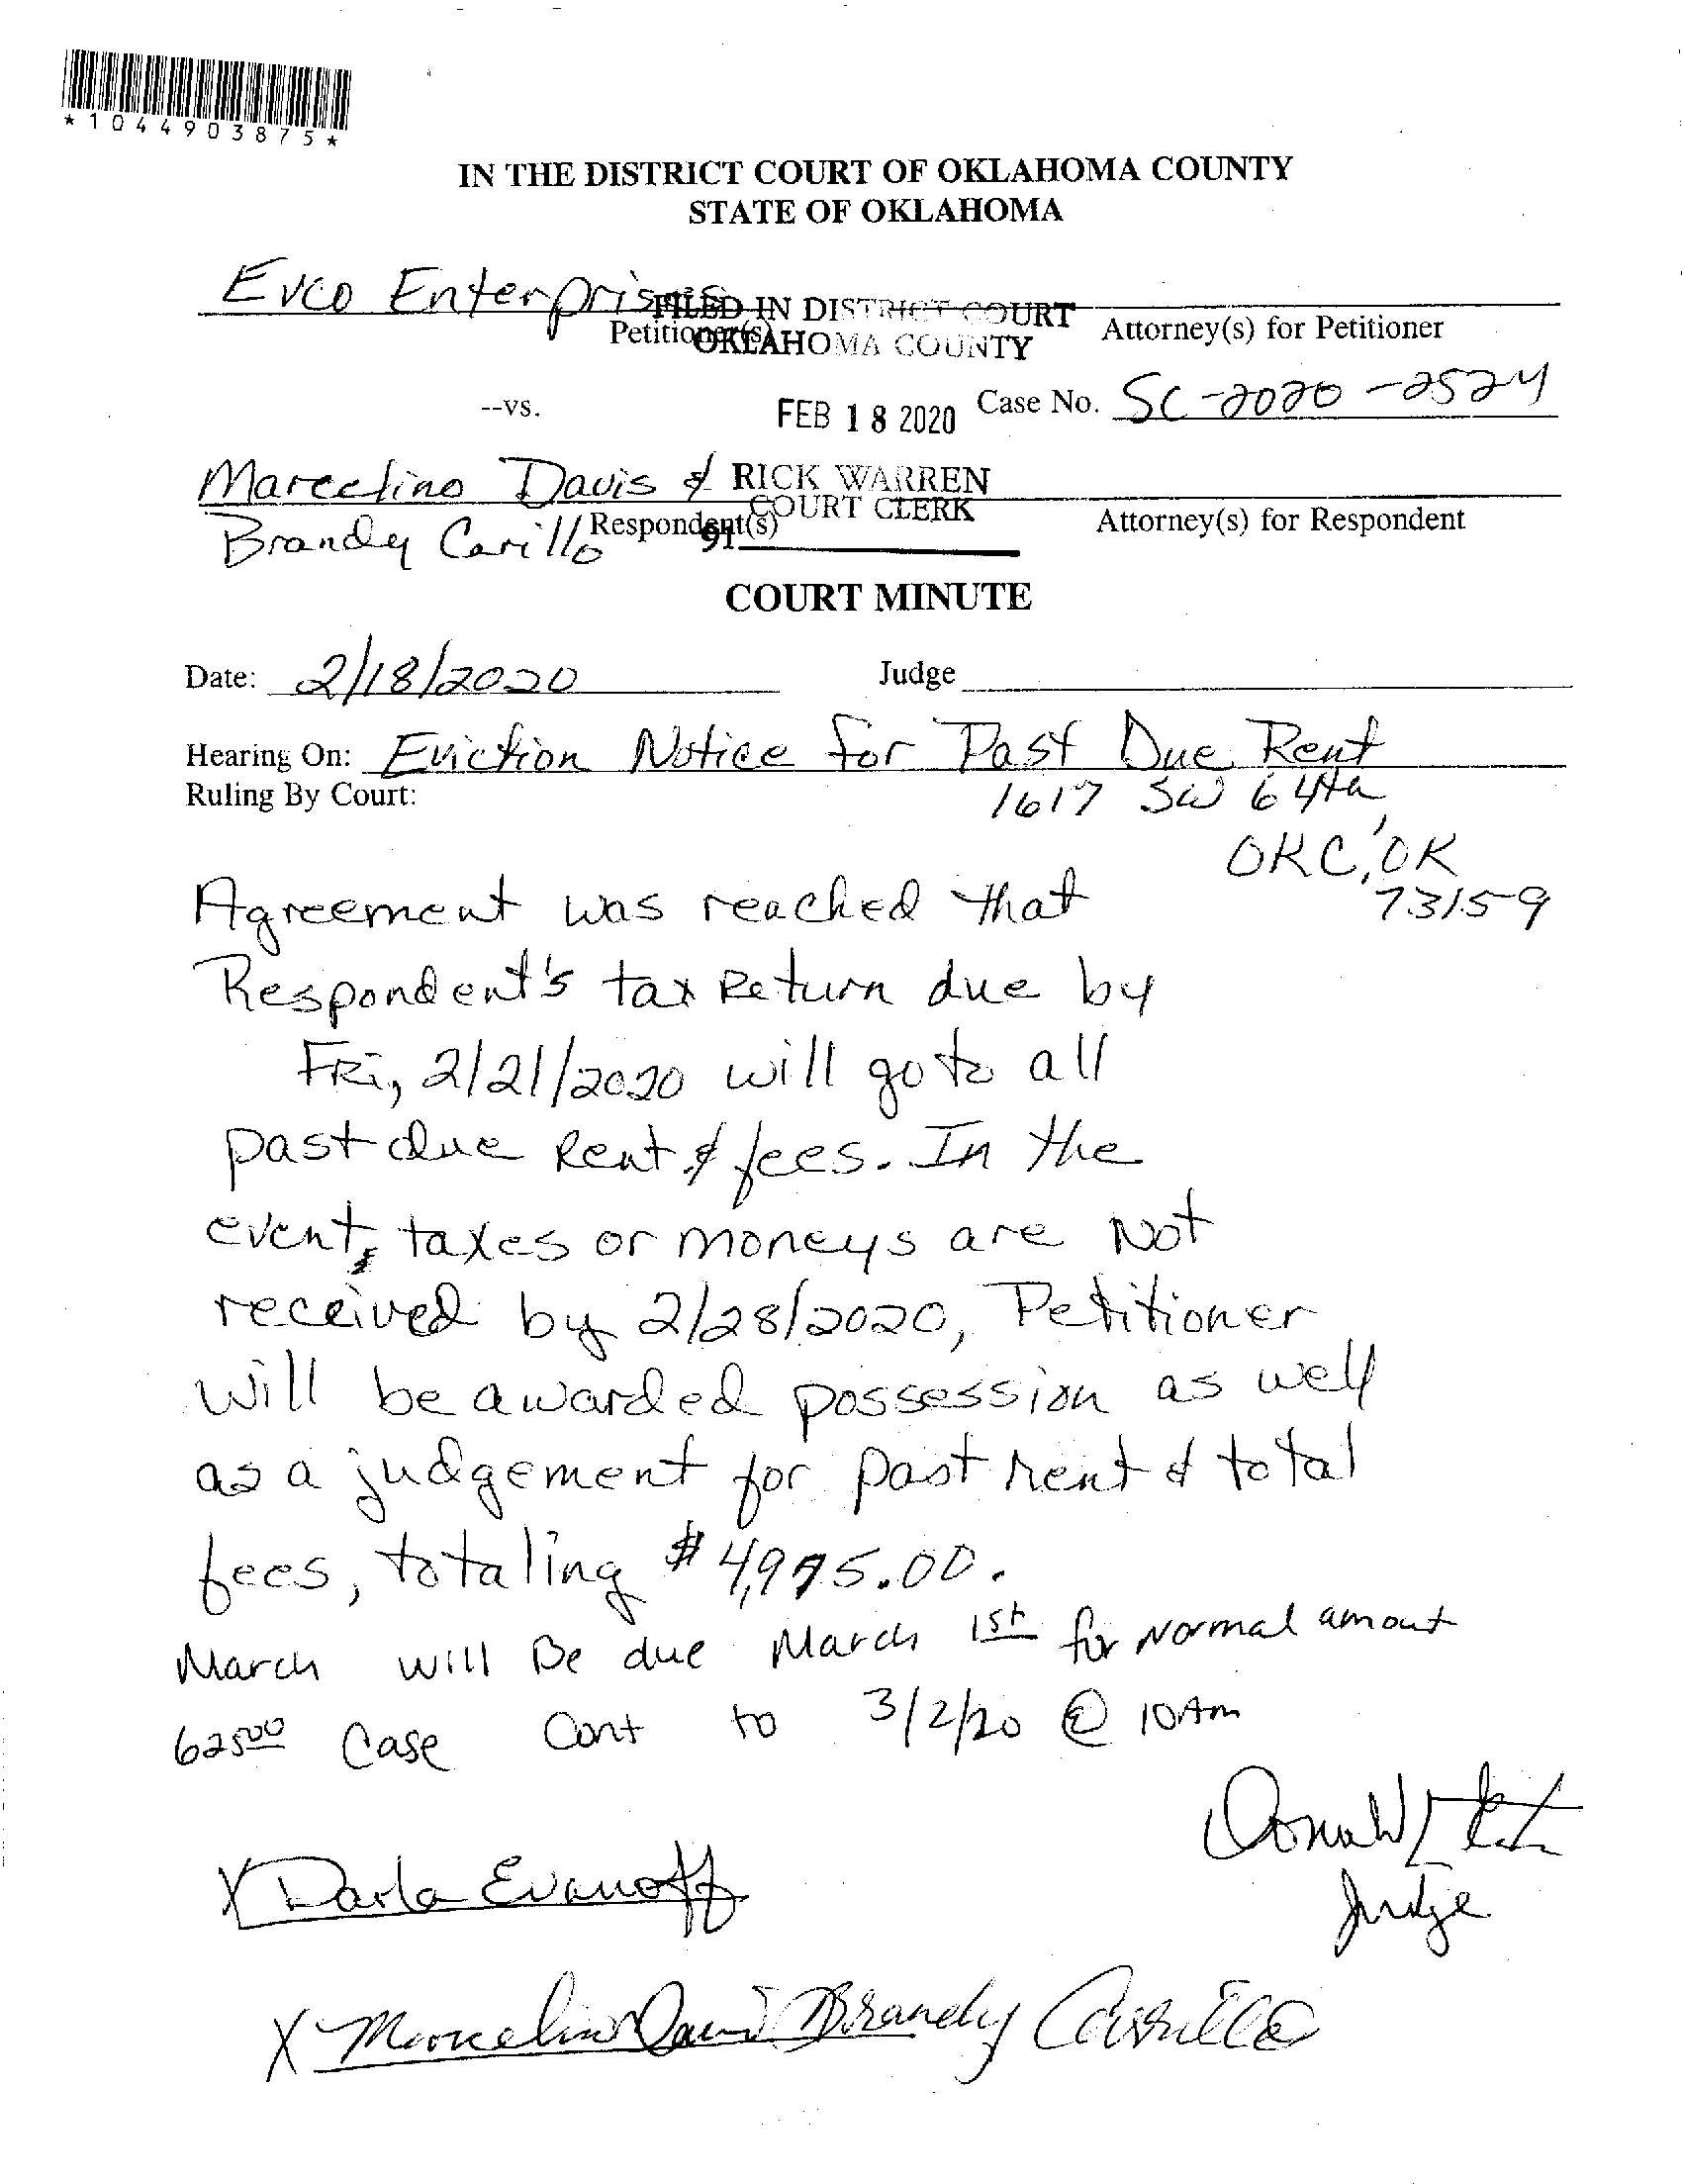 *1044903875*
IN THE DISTRICT COURT OF OKLAHOMA COUNTY
STATE OF OKLAHOMA
Evco Enterprises
FILED IN DISTRICT COURT
Petitioner(s) Attorney(s) for Petitioner
OKLAHOMA COUNTY
--vs. FEB 18 2020 Case No. SC-2020-2524
Marcelino Davis & RICK WARREN
COURT CLERK
Brandy Carillo Respondent(s) Attorney(s) for Respondent
91
COURT MINUTE
Date: 2/18/2020 Judge
Hearing On: Eviction Notice for Past Due Rent
Ruling By Court: 1617 SW 64th,
OKC, OK
73159
Agreement was reached that
Respondent's tax Return due by
FRi, 2/21/2020 will go to all
past due Rent & fees. In the
event, taxes or moneys are Not
received by 2/28/2020, Petitioner
will be awarded possession as well
as a judgement for past rent & total
fees, totaling $4,975.00.
March will Be due March 1st for Normal amount
625.00 Case Cont to 3/2/20 @ 10Am
Donald
Judge
X Darla Evanoff
X Marcelino Davis Brandy Carrillo